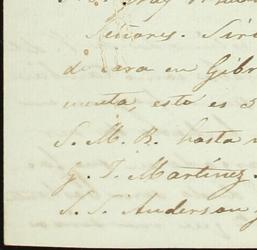 Señores. Sir
de cara en Gibr
cuenta, esto es 3
S. M. B. hasta
G. T. Martinez.
S. S. Anderson y